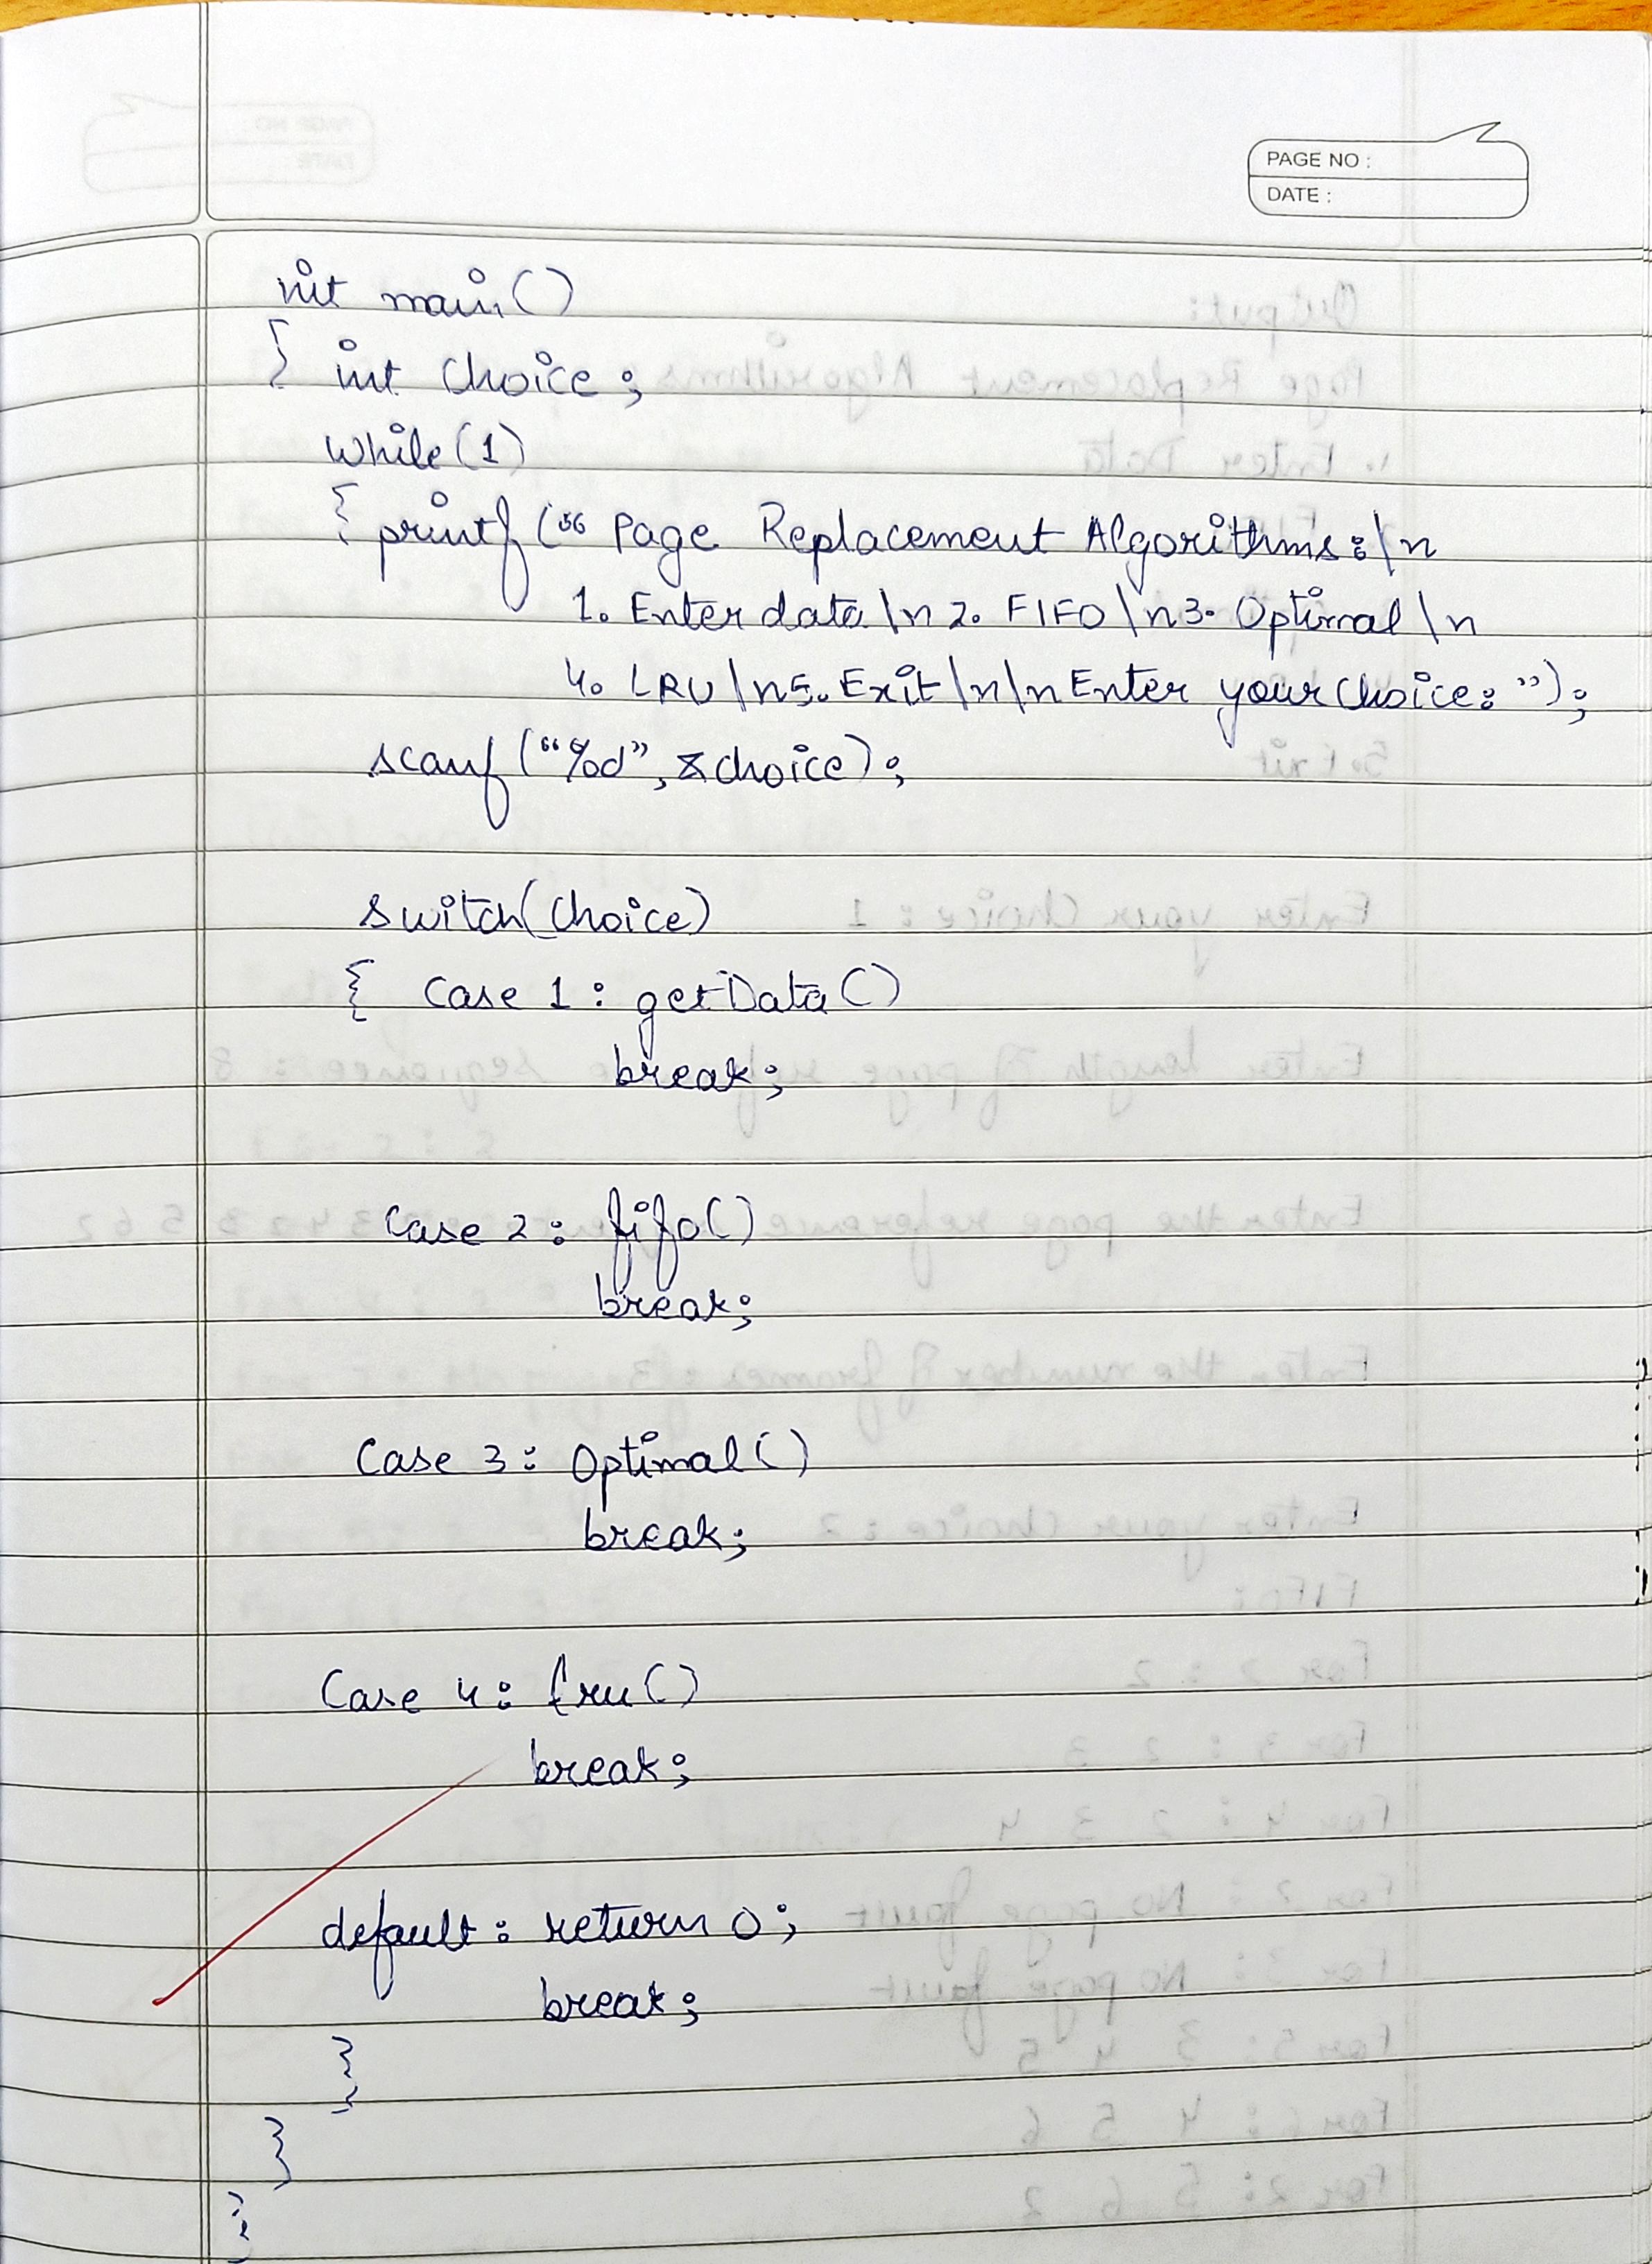 PAGE NO :
DATE :
int main()
{ int choice;
while(1)
{ printf("Page Replacement Algorithms:\n
1. Enter data\n2. FIFO\n3. Optimal\n
4. LRU\n5. Exit\n\nEnter your choice:");
scanf("%d", &choice);
switch(choice)
{ case 1: getData()
break;
case 2: fifo()
break;
case 3: Optimal()
break;
case 4: lru()
break;
default: return 0;
break;
}
}
}